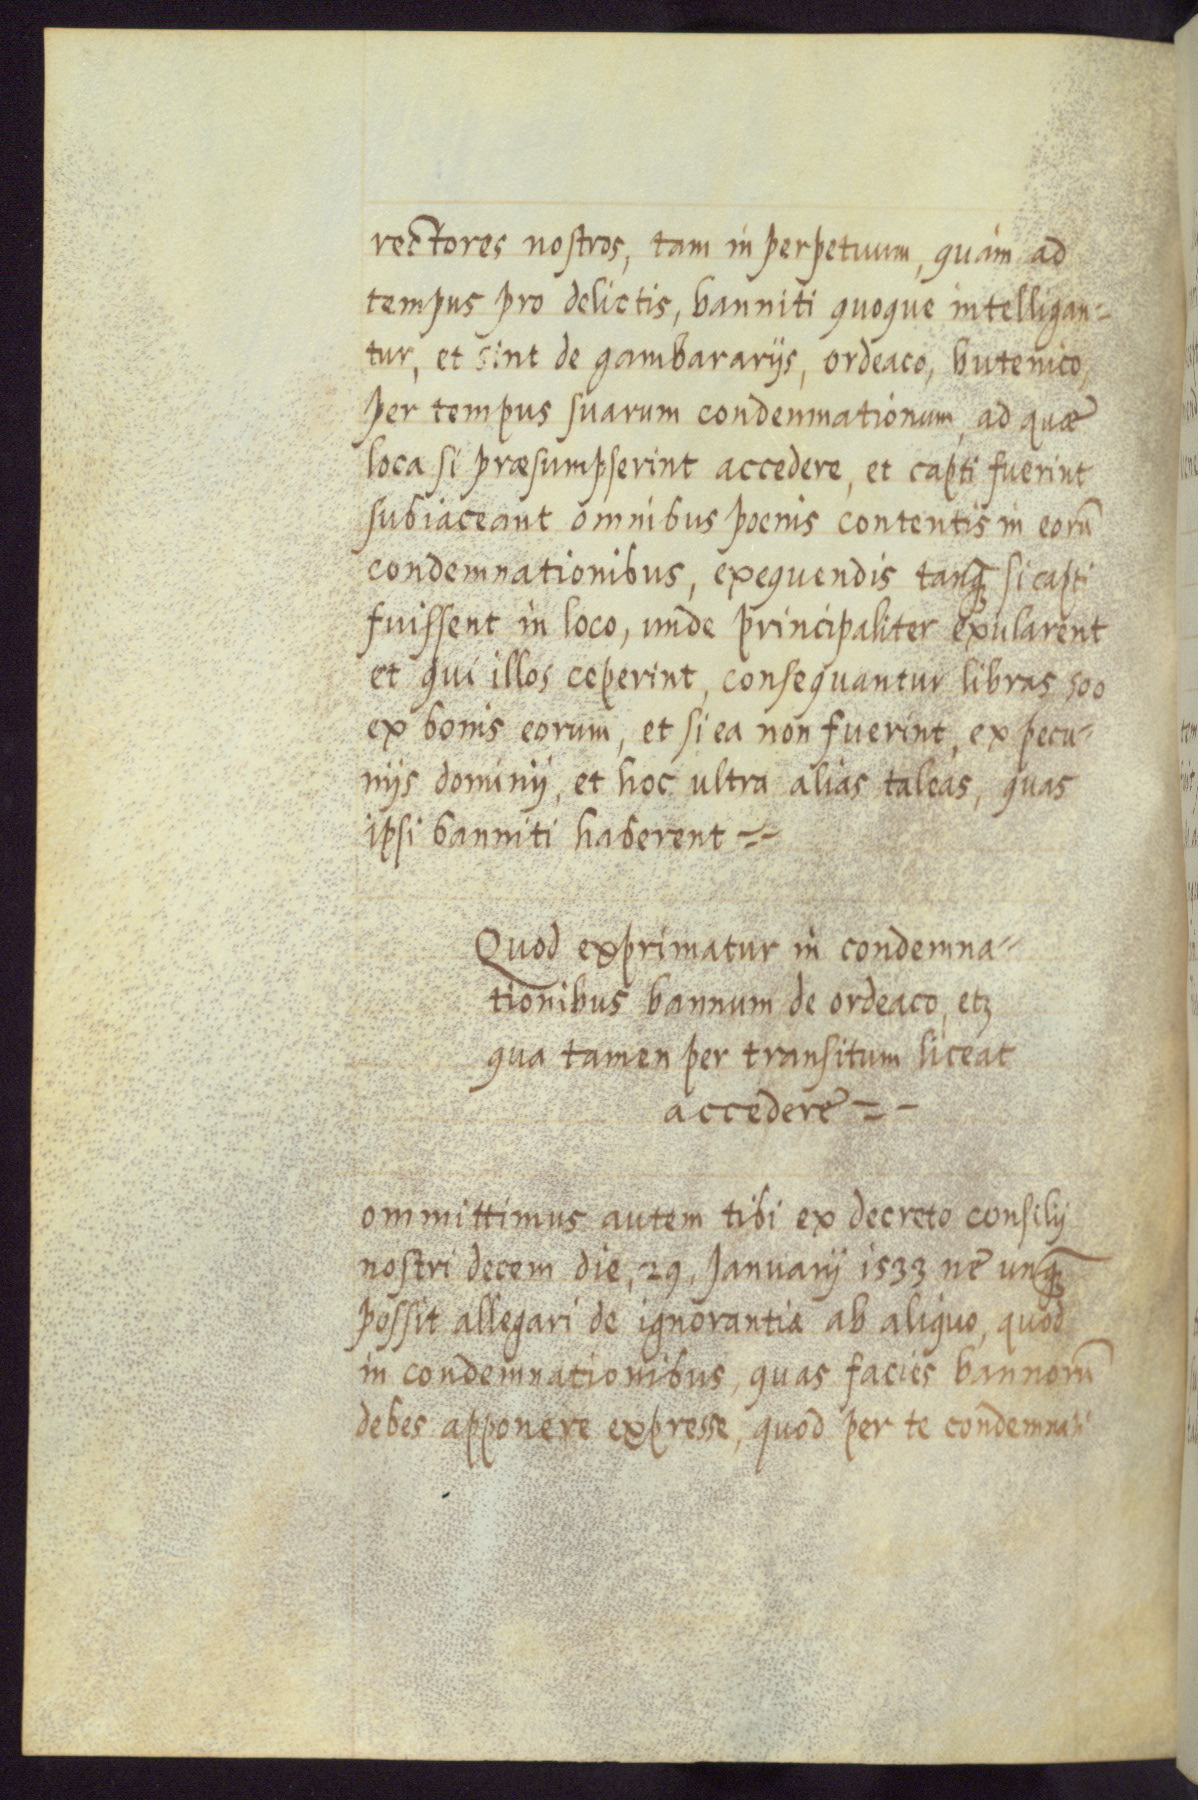 rectores nostros, tam in perpetuum, quàm ad
tempus pro delictis, banniti quoque intelligan=
tur, et sint de gambararijs, ordeaco, butenico,
per tempus suarum condemnationum, ad quæ
loca si præsumpserint accedere, et capti fuerint
subiaceant omnibus poenis contentis in eorũ
condemnationibus, exequendis tanq̃ si capti
fuissent in loco, unde principaliter exularent
et qui illos ceperint, consequantur libras 500
ex bonis eorum, et si ea non fuerint, ex pecu=
nijs dominij, et hoc ultra alias taleas, quas
ipsi banniti haberent =-
Quod exprimatur in condemna=
tionibus bannum de ordeaco, etꝫ
qua tamen per transitum liceat
accedere =-
ommittimus autem tibi ex decreto consilij
nostri decem die, 29, Januarij 1533 ne unq̃
possit allegari de ignorantia ab aliquo, quod
in condemnationibus, quas facies bannorũ
debes apponere expresse, quod per te condemnati